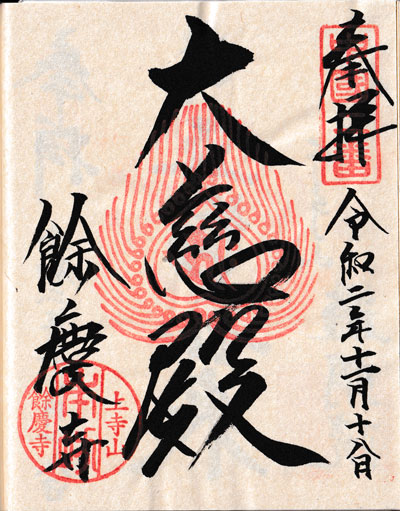 奉拝
令和二年十一月十八日
大慈殿
餘慶寺
上寺山
餘慶寺